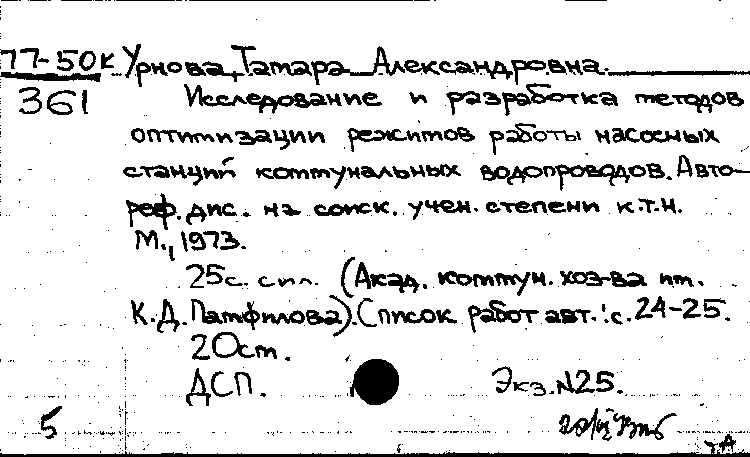 77-50к Урнова, Тамара Александровна.
361 Исследование и разработка методов
оптимизации режимов работы насосных
станций коммунальных водопроводов. Авто-
реф. дис. на соиск. учен. степени к.т.н.
М., 1973.
25с. с ил. (Акад. коммун. хоз-ва им.
К.Д. Памфилова). Список работ авт.: с. 24-25.
20см.
ДСП. Экз. N25.
5